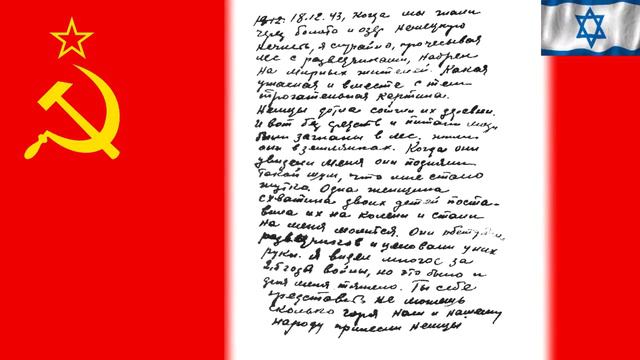 18.12.43, когда мы гнали
через болота и озер немецкую
нечисть, я случайно, прочесывая
лес с разведчиками, набрел
на мирных жителей. Какая
ужасная и вместе с тем
трогательная картина.
Немцы дотла сожгли их деревни.
И вот без средств и питания люди
были загнаны в лес. жили
они в землянках. Когда они
увидели меня они подняли
такой шум, что мне стало
жутко. Одна женщина
схватила двоих детей поста-
вила их на колени и стали
на меня молится. Они
разведчиков и целовали у них
руки. Я видел многое за
2,5 года войны, но это было и
для меня тяжело. Ты себе
представить не можешь
сколько горя нам и нашему
народу принесли немцы